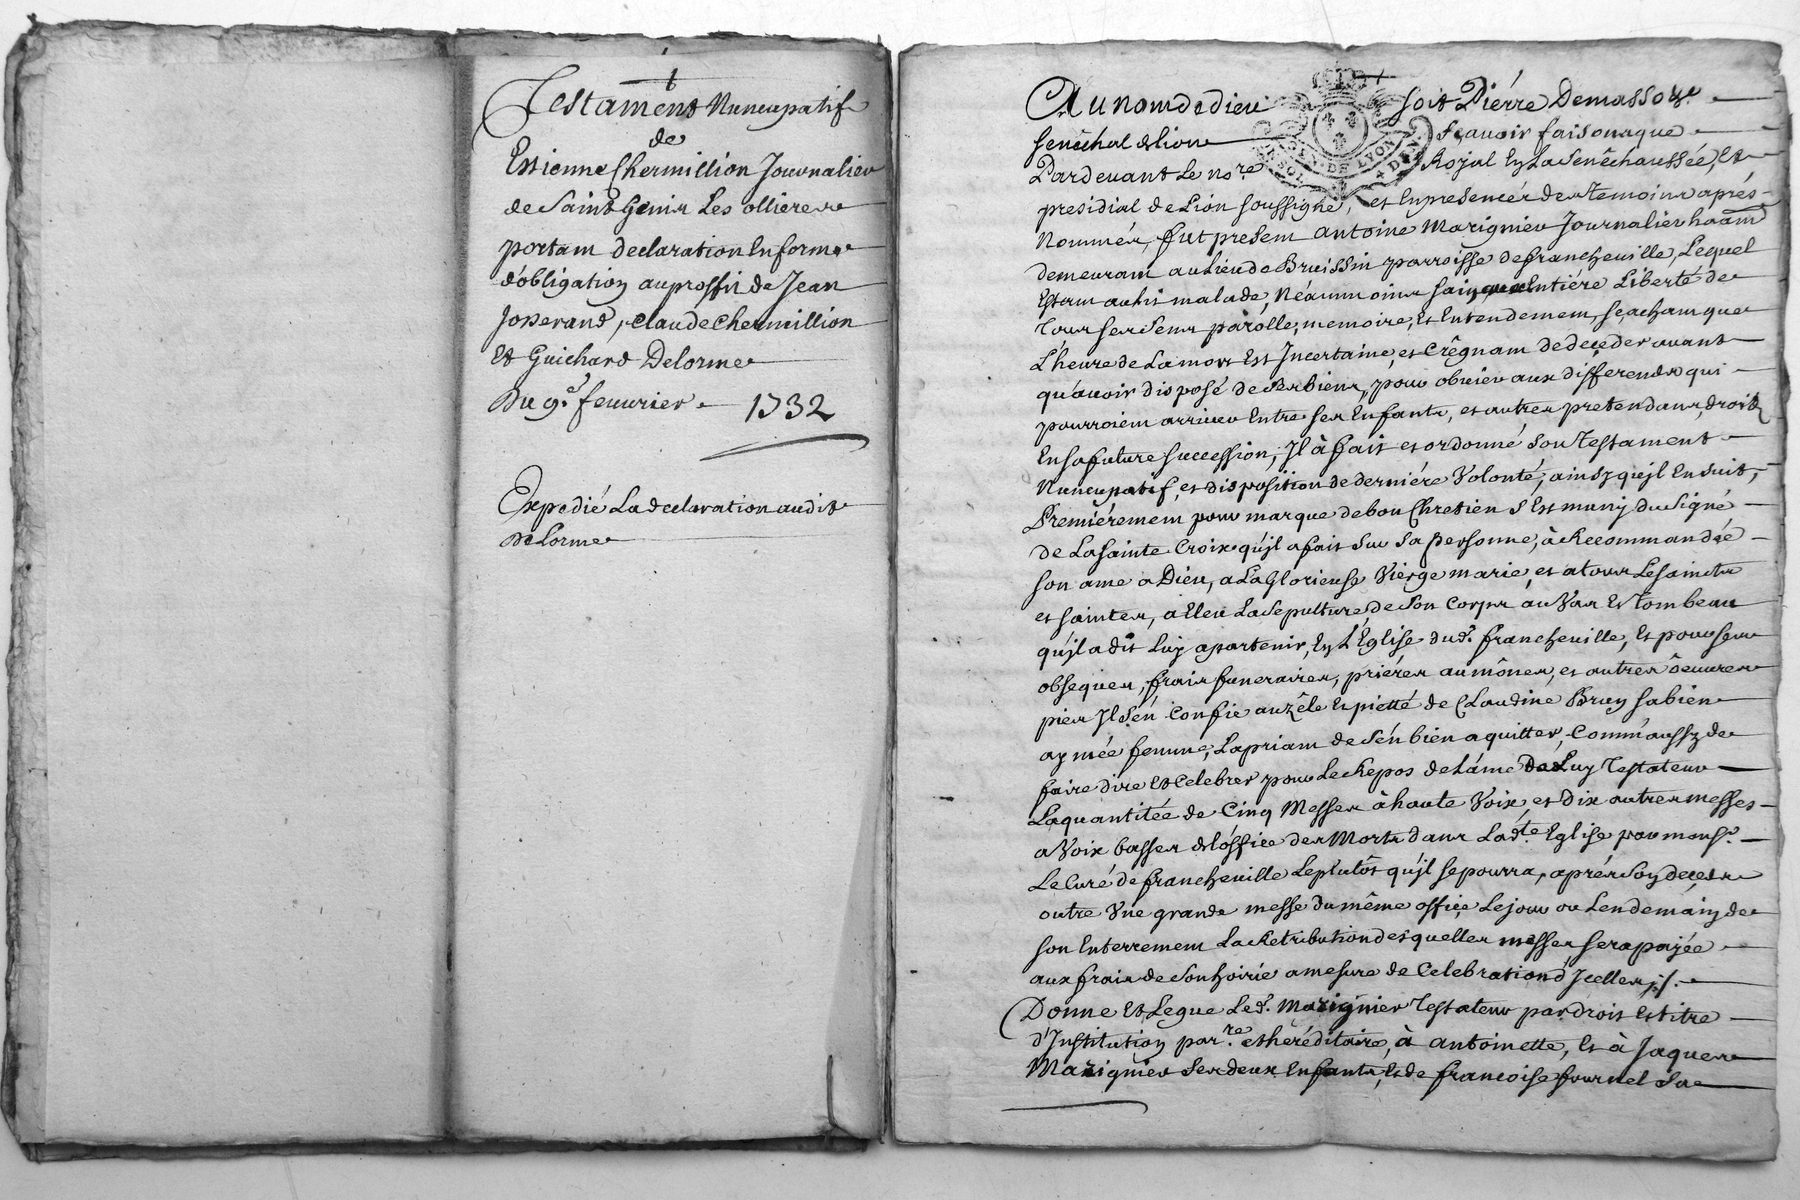 Testament Nuncupatif
de
Estienne Chermillion Journalier
de Saint Genis Les ollieres
portant declaration En forme
d'obligation au proffit de Jean
Josserand, Claude Chermillion
Et Guichard Delorme
Du 9e. feuvrier 1732
Expedié La declaration audit
Delorme
Au nom de dieu soit Pierre Demasso
senêchal de lion sçauoir faisons que
Pardeuant Le nore. Royal En La Senêchaussée, Et
presidial de Lion soussigné, et En presence des temoins aprés
Nommés, fut present antoine Marignier Journalier
demeurant au Lieu de Bruissin parroisse de francheuille, Lequel
Estant au lit malade, Néanmoins sain Entiére Liberté de
tous ses Sens parolle, memoire, Et Entendement, sçachant que
L'heure de La mort Est Incertaine, et Crêgnant de deçeder auant
qu'auoir disposé de ses biens, pour obuier aux differends qui
pourroient arriuer Entre ses Enfants, et autres pretendans droit
En sa future succession, Il à fait et ordonné son testament
Nuncupatif, et disposition de derniére Volonté, ainsy qu'jl En suit,
Premiérement pour marque de bon Chretien s'Est muny du Signé
de La sainte Croix qu'jl a fait sur sa personne, à Recommandée
son ame a Dieu, a La Glorieuse Vierge marie, et a tous Les saincts
et saintes, a Eleu La Sepulture de Son Corps au Vas Et tombeau
qu'jl a dit Luy apartenir, En L'Eglise dud. francheuille, Et pour ses
obseques, frais funeraires, priéres aumônes, et autres oeuures
pies Il s'én Confie au zêle Et pietté de Claudine Brun sa bien
aymée femme, La priant de s'én bien aquitter, Comm'aussy de
faire dire Et Celebrer pour Le Repos de L'áme De Luy Testateur
La quantitée de Cinq Messes à haute Voix, et Dix autres messes
a Voix basses de L'óffice des Morts dans Ladte. Eglise par monsr.
Le Curé de francheuille Le plutôt qu'jl se pourra, aprés Son deçeds
outre Vne grande messe du même offiçe Le jour ou Lendemain de
son Enterrement La Retribution desquelles messes sera payée
aux frais de son hoirié a mesure de Celebration d'Jcelles ./.
Donne Et Legue Led. Marignier Testateur par droit Et titre
d'Institution parre. et héréditaire, à antoinette, Et à Jaques
Marignier Ses deux Enfants, Et de francoise fournel Sa